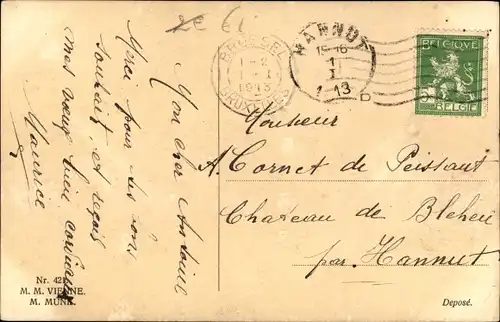 2e
BRUSSEL
1-2
1-I
1913
BRUXELLES
HANNUT
15-16
1
I
1913
D
BELGIQUE
5
BELGIE
Mon cher Antoine
Merci pour tes bons
souhaits et reçois
mes vœux bien cordiaux
Maurice
Monsieur
A. Cornet de Peissant
Chateau de Blehen
par Hannut
Nr. 42
M. M. VIENNE.
M. MUNK.
Deposé.